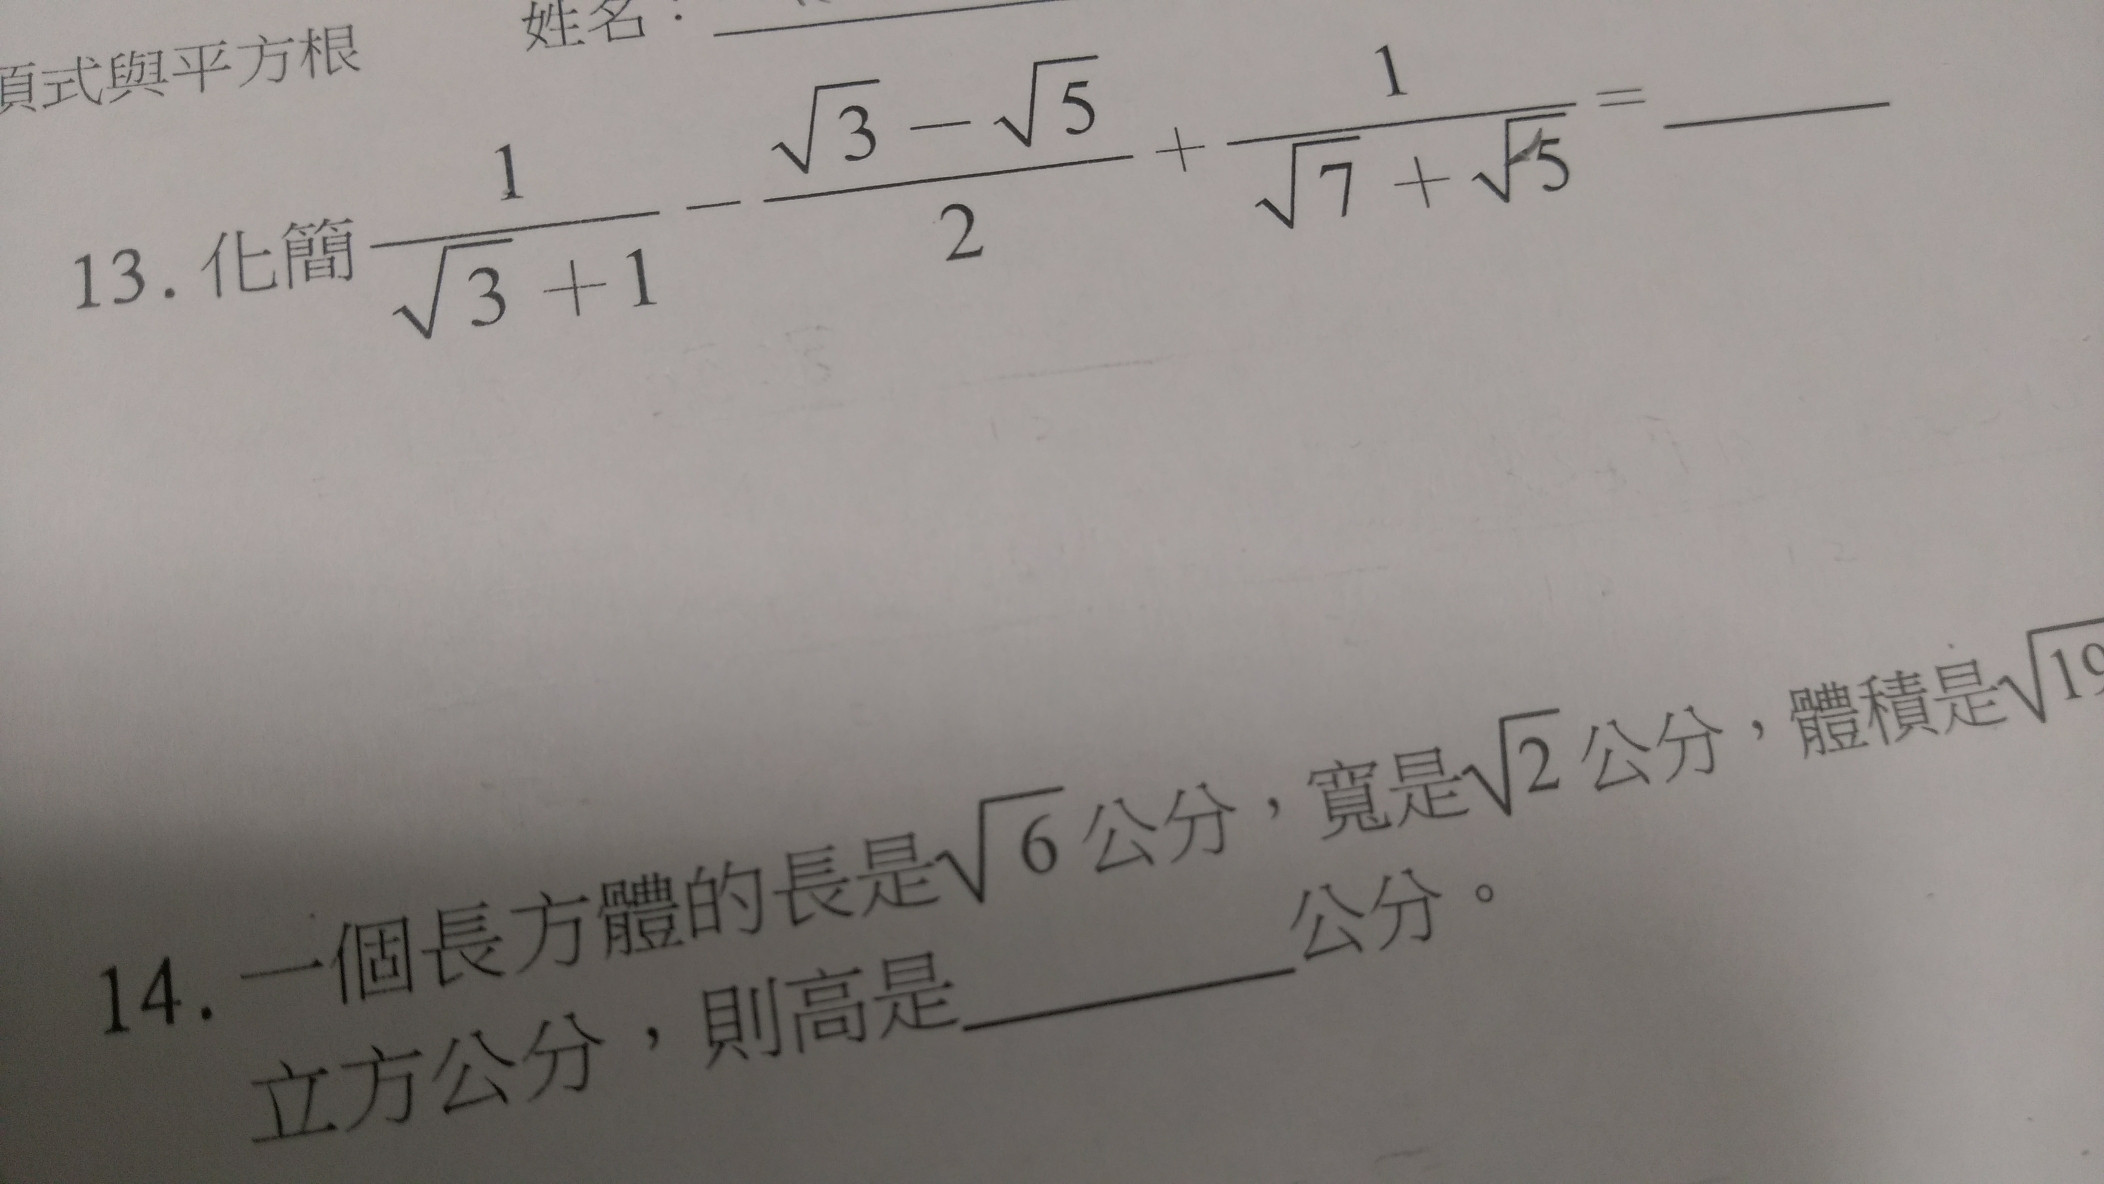 項式與平方根 姓名：
13. 化簡 \frac{1}{\sqrt{3}+1} - \frac{\sqrt{3}-\sqrt{5}}{2} + \frac{1}{\sqrt{7}+\sqrt{5}} = ____
14. 一個長方體的長是√6 公分，寬是√2 公分，體積是√19
立方公分，則高是______公分。